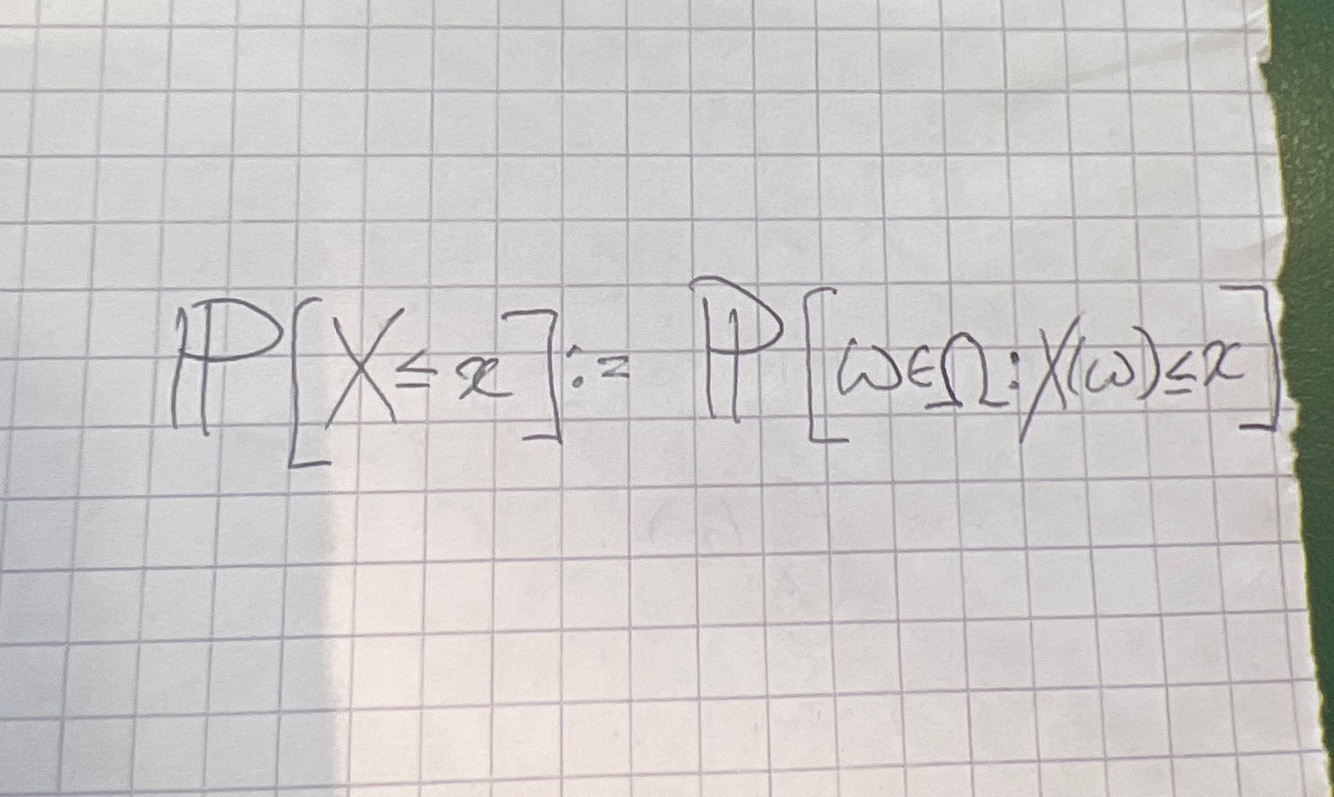 ℙ[X≤x]:= ℙ[ω∈Ω:X(ω)≤x]